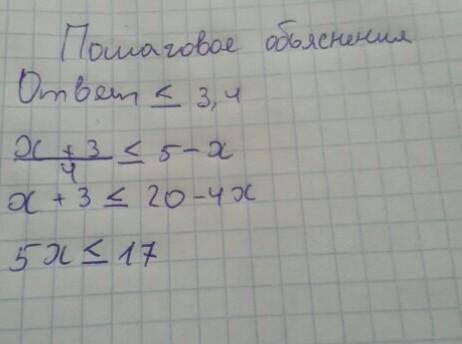 Пошаговое обьяснения
Ответ ≤ 3,4
x + 3 / 4 ≤ 5 - x
x + 3 ≤ 20 - 4x
5x ≤ 17